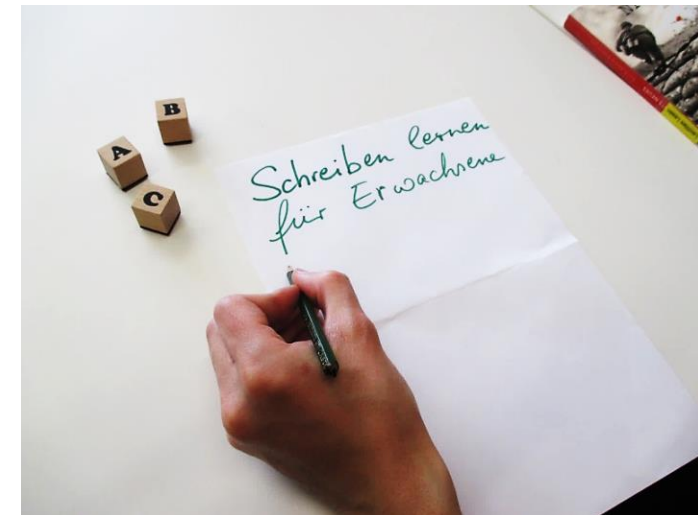 B
A
C
Schreiben lernen
für Erwachsene